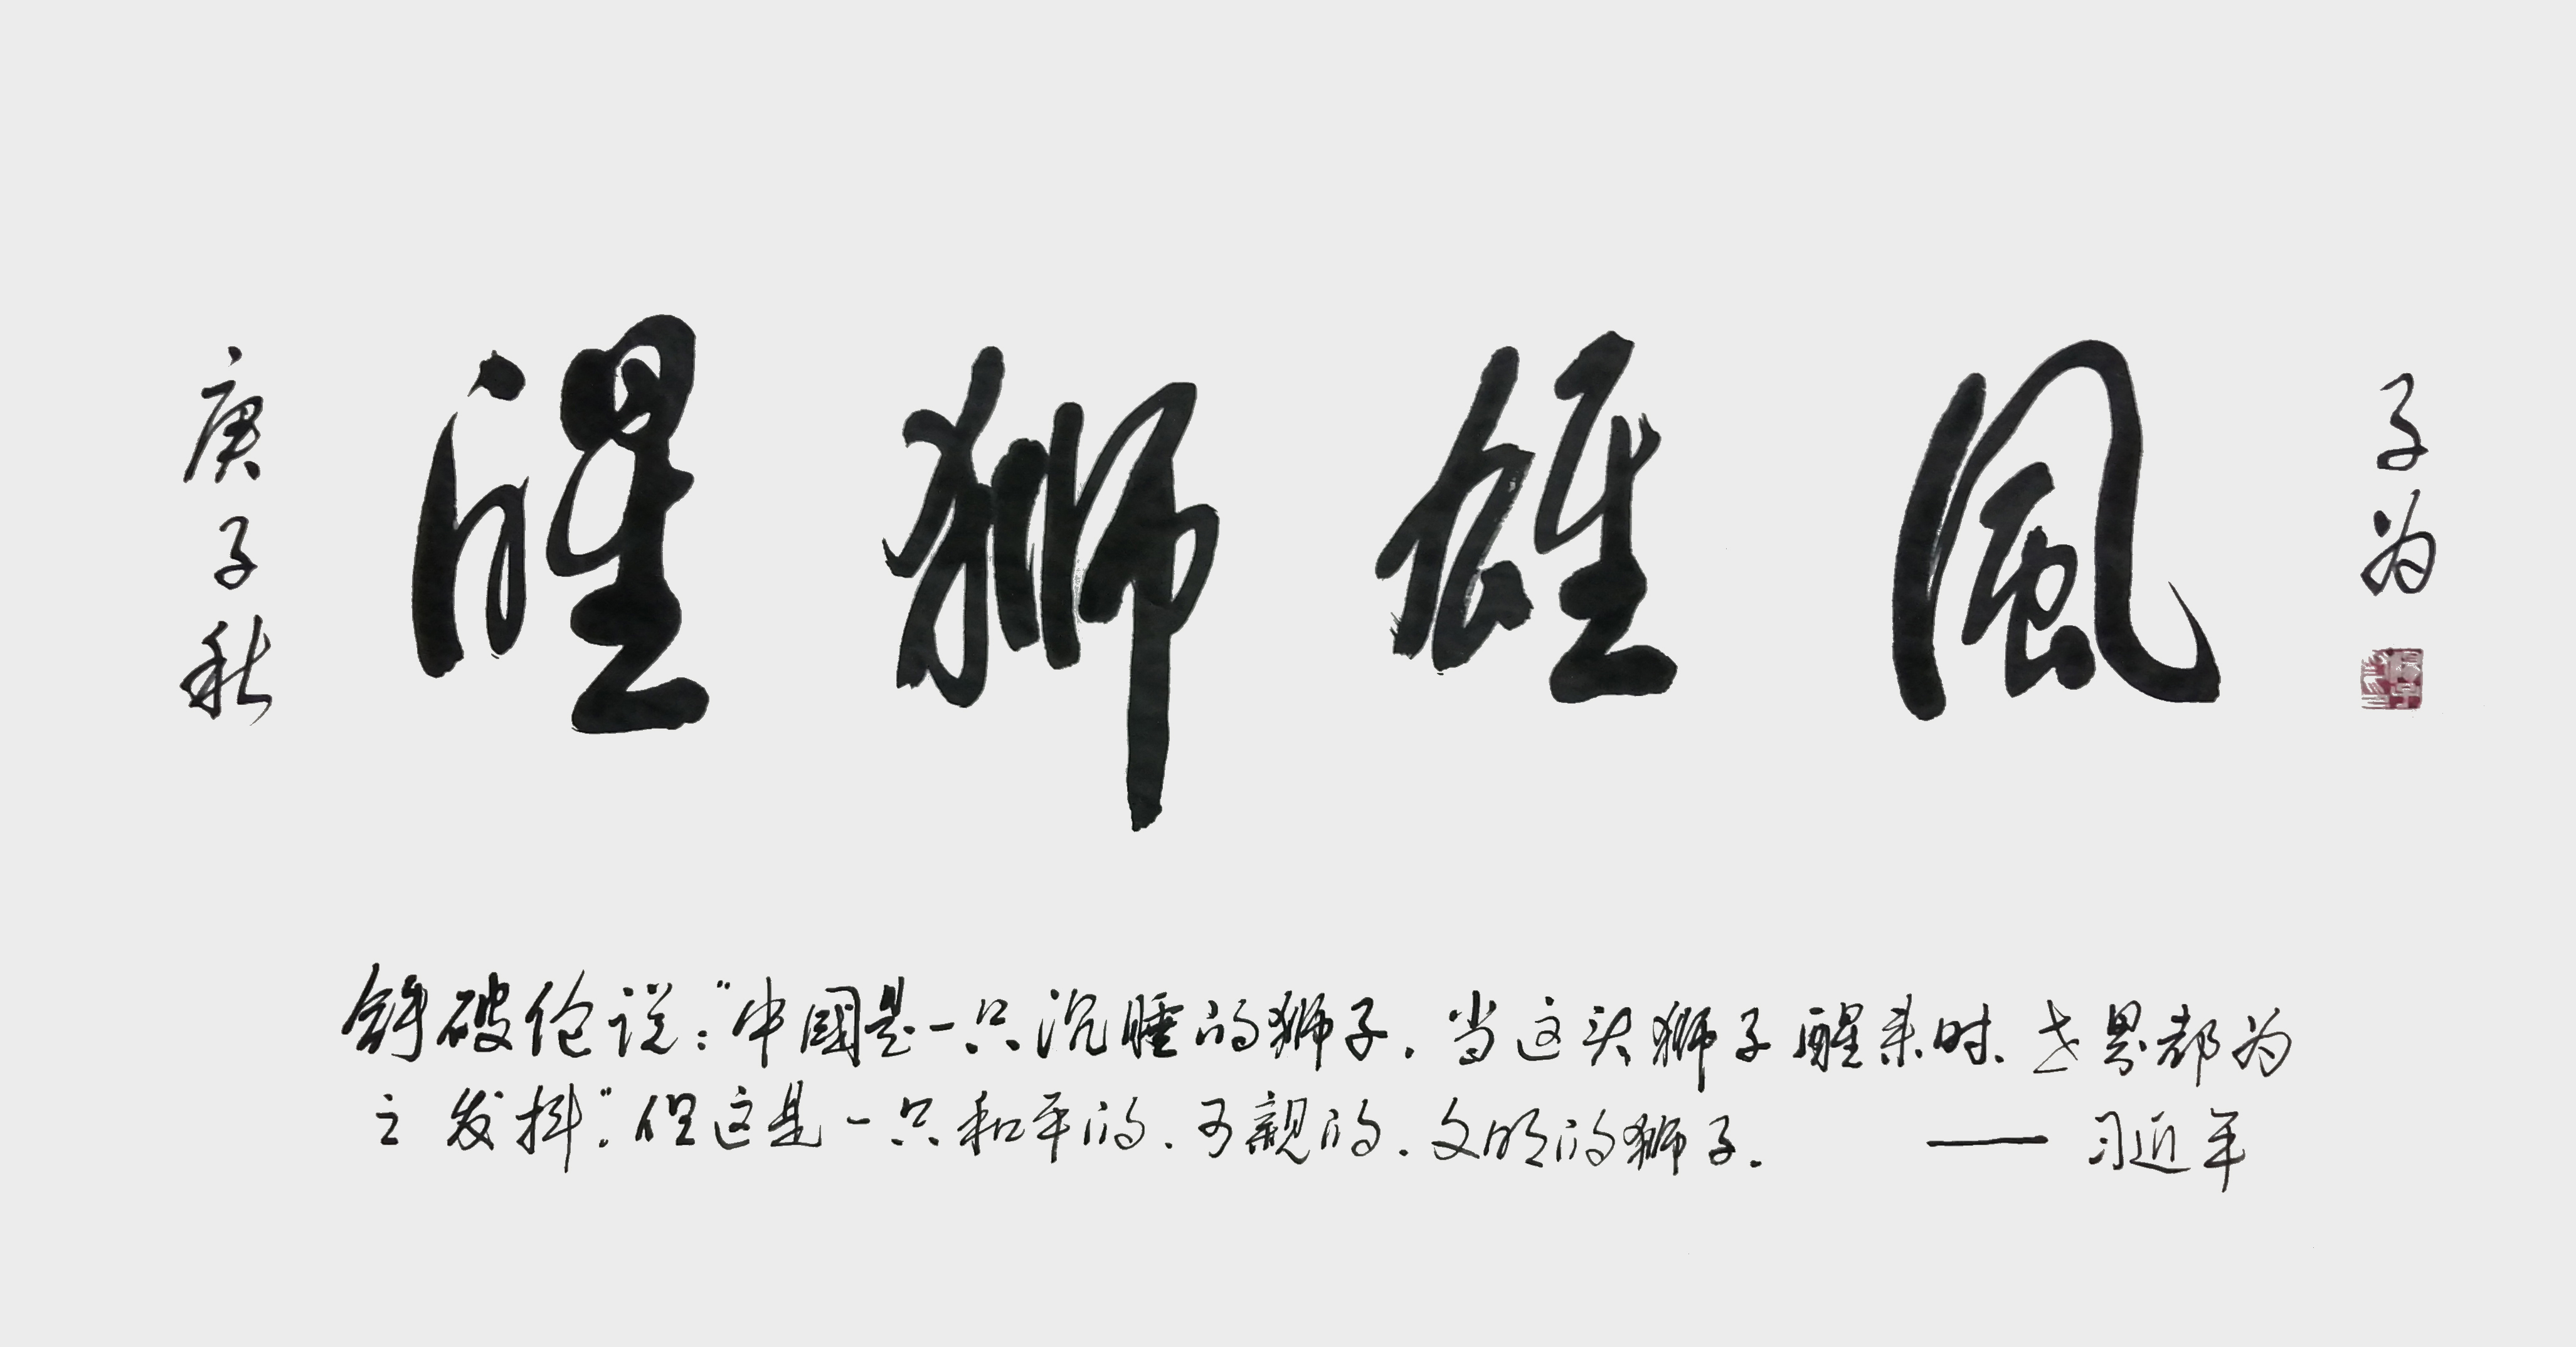 庚子秋
醒狮雄風
子为
拿破伦说："中國是一只沉睡的狮子.当这头狮子醒来时、世界都为
之发抖".但这是一只和平的、可親的.文明的狮子.
——习近平